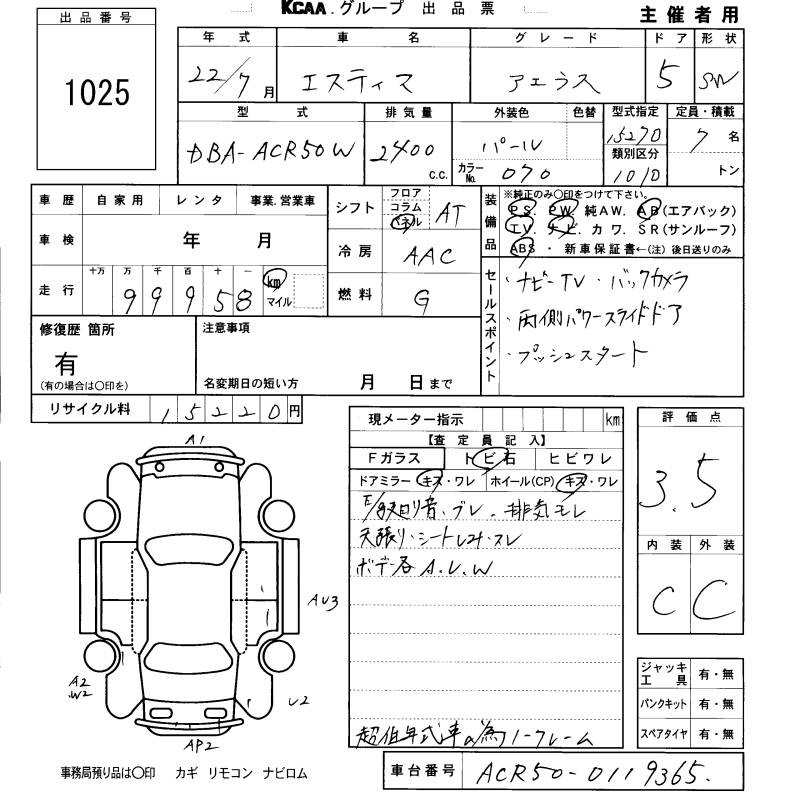 KCAA.グループ 出品票
主催者用
出品番号
1025
年式 車名 グレード ドア 形状
22/7月 エスティマ アエラス 5 SW
型式 排気量 外装色 色替 型式指定 定員・積載
DBA-ACR50W 2400 c.c. パール 15270 7名
カラーNo. 070 類別区分 1010 トン
車歴 自家用 レンタ 事業.営業車
車検 年 月
走行 十万 万 千 百 十 一 km マイル
99958
シフト フロア コラム パネル AT
冷房 AAC
燃料 G
装備品
※純正のみ〇印をつけて下さい。
PS. PW. 純AW. AB(エアバック)
TV. ナビ. カワ. SR(サンルーフ)
ABS・新車保証書←(注)後日送りのみ
セールスポイント
・ナビーTV・バックカメラ
・両側パワースライドドア
・プッシュスタート
修復歴 箇所
有
(有の場合は〇印を)
注意事項
名変期日の短い方 月 日まで
リサイクル料 15220円
現メーター指示 km
【査定員記入】
Fガラス トビ石 ヒビワレ
ドアミラー キズ・ワレ ホイール(CP) キズ・ワレ
音、ブレ、排気モレ
天張り・シート
ボデー各 A.U.W
超低年式車の為ノークレーム
評価点
3.5
内装 外装
C C
ジャッキ工具 有・無
パンクキット 有・無
スペアタイヤ 有・無
A1
AU3
A2
W2
U2
AP2
事務局預り品は〇印 カギ リモコン ナビロム
車台番号 ACR50-0119365.